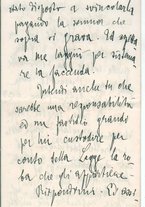 stato disposto a svincolarla
pagando la somma che
sopra vi grava. Ed aspetta
va me laggiù per sistema
re la faccenda.
Intendi anche tu che
sarebbe una responsabilità
ed un fastidio grande
per lui custodire per
conto della Legge la ro
ba che gli appartiene.
Rispondimi. Ed assi-